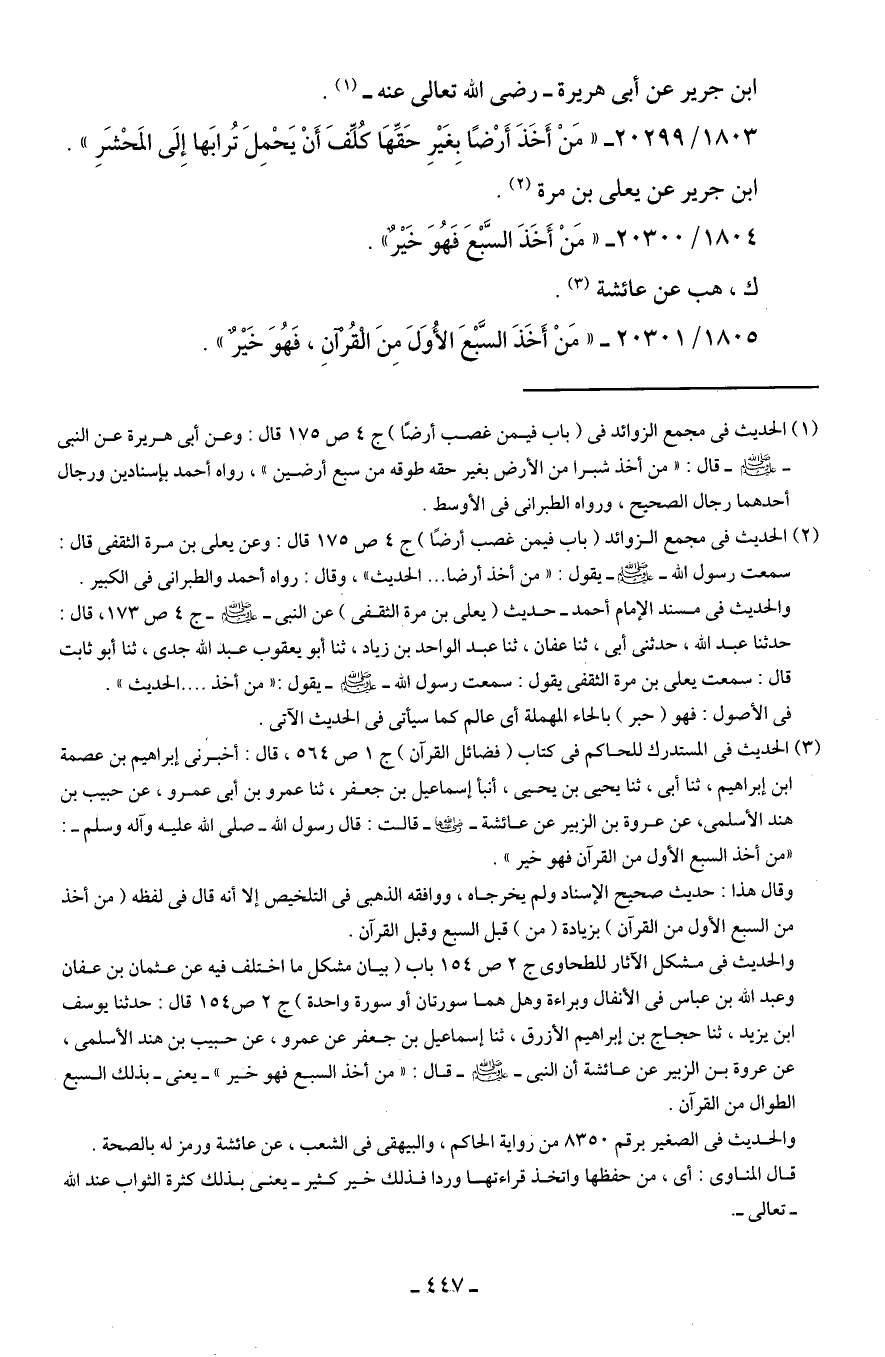 ابن جرير عن أبى هريرة ـ رضى الله تعالى عنه ـ (١) .
١٨٠٣/ ٢٠٢٩٩ـ « مَنْ أَخَذَ أَرْضًا بِغَيْرِ حَقِّهَا كُلِّفَ أَنْ يَحْمِلَ تُرابَها إِلَى المَحْشَرِ » .
ابن جرير عن يعلى بن مرة (٢) .
١٨٠٤/ ٢٠٣٠٠ـ « مَنْ أَخَذَ السَّبْعَ فَهُوَ خَيْرٌ» .
ك ، هب عن عائشة (٣) .
١٨٠٥/ ٢٠٣٠١ ـ « مَنْ أَخَذَ السَّبْعَ الأُوَلَ مِنَ الْقُرْآنِ ، فَهُوَ خَيْرٌ» .
(١) الحديث فى مجمع الزوائد فى ( باب فيـمن غصب أرضًا ) ج ٤ ص ١٧٥ قال : وعـن أبى هـريرة عـن النبى
ـ ﷺ ـ قال : « من أخذ شبـرا من الأرض بغير حقه طوقه من سبع أرضـين » ، رواه أحمد بإسنادين ورجال
أحدهما رجال الصحيح ، ورواه الطبرانى فى الأوسط .
(٢) الحديث فى مجمع الـزوائد ( باب فيمن غصب أرضًا ) ج ٤ ص ١٧٥ قال : وعن يعلى بن مـرة الثقفى قال :
سمعت رسول الله ـ ﷺ ـ يقول : « من أخذ أرضا... الحديث» ، وقال : رواه أحمد والطبرانى فى الكبير .
والحديث فى مسند الإمام أحمد ـ حـديث ( يعلى بن مرة الثقـفى ) عن النبى ـ ﷺ ـ ج ٤ ص ١٧٣، قال :
حدثنا عبـد الله ، حدثنى أبى ، ثنا عفان ، ثنا عبـد الواحد بن زياد ، ثنا أبو يعقوب عبـد الله جدى ، ثنا أبو ثابت
قال : سمعت يعلى بن مرة الثقفى يقول : سمعت رسول الله ـ ﷺ ـ يقول :« من أخذ ....الحديث » .
فى الأصول : فهو ( حبر ) بالحاء المهملة أى عالم كما سيأتى فى الحديث الآتى .
(٣) الحديث فى المستدرك للحـاكم فى كتاب ( فضائل القرآن ) ج ١ ص ٥٦٤ ، قال : أخبـرنى إبراهيم بن عصمة
ابن إبراهيم ، ثنا أبى ، ثنا يحيى بن يحيـى ، أنبأ إسماعيل بن جـعفر ، ثنا عمرو بن أبى عمـرو ، عن حبيب بن
هند الأسلمى، عن عـروة بن الزبير عن عـائشة ـ رضي الله عنها ـ قالـت : قال رسول الله ـ صلى الله عليـه وآله وسلم ـ :
«من أخذ السبع الأول من القرآن فهو خير » .
وقال هذا : حديث صحيح الإسناد ولم يخرجـاه ، ووافقه الذهبى فى التلخيص إلا أنه قال فى لفظه ( من أخذ
من السبع الأول من القرآن ) بزيادة ( من ) قبل السبع وقبل القرآن .
والحديث فى مـشكل الآثار للطحاوى ج ٢ ص ١٥٤ باب ( بيـان مشكل ما اخـتلف فيه عن عـثمان بن عـفان
وعبد الله بن عباس فى الأنفال وبراءة وهل همـا سورتان أو سورة واحدة ) ج ٢ ص١٥٤ قال : حدثنا يوسف
ابن يزيد ، ثنا حجـاج بن إبراهيم الأزرق ، ثنا إسماعيل بن جـعفر عن عمرو ، عن حـبيب بن هند الأسلمى ،
عن عروة بـن الزبير عن عـائشة أن النبى ـ ﷺ ـ قـال : « من أخذ السبـع فهو خـير » ـ يعنى ـ بـذلك الـسبع
الطوال من القرآن .
والحـديث فى الصغير برقم ٨٣٥٠ من رواية الحاكم ، والبيهقى فى الشعب ، عن عائشة ورمز له بالصحة .
قـال المنـاوى : أى ، من حفظها واتخـذ قراءتهـا وردا فـذلك خير كثير ـ يعنـى بـذلك كثرة الثواب عند الله
ـ تعالى ـ.
ـ ٤٤٧ ـ